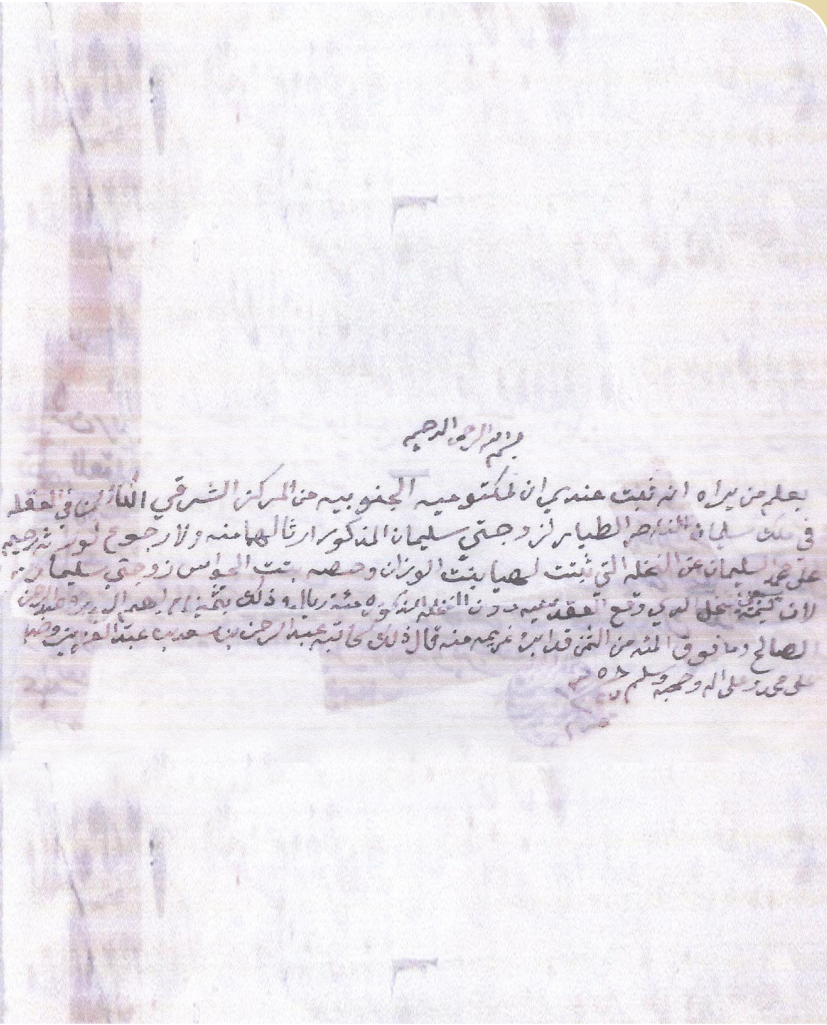 بسم الله الرحمن الرحيم
يعلم من يراه انه ثبت عندي ان المكتوميه الجنوبيه من المركز الشرقي الكائن في العقله
في ملك سليمان الناصر الطيار لزوجتي سليمان المذكور ارثا لهما منه ولا رجوع لورثة
على حمد السليمان عن النخله التي ثبتت لهيا بنت الوزان وحصه بنت الحواس زوجتي سليمان
لان نخل الذي وقع العقد عليه دون النخله المذكوره مئة ريال وذلك بتثمين ابراهيم
الصالح وما فوق المئه من الثمن قد ابرئ غريمه منه قال ذلك كاتبه عبد الرحمن بن سعد بن عبد العزيز وصلى
على محمد وعلى اله وصحبه وسلم